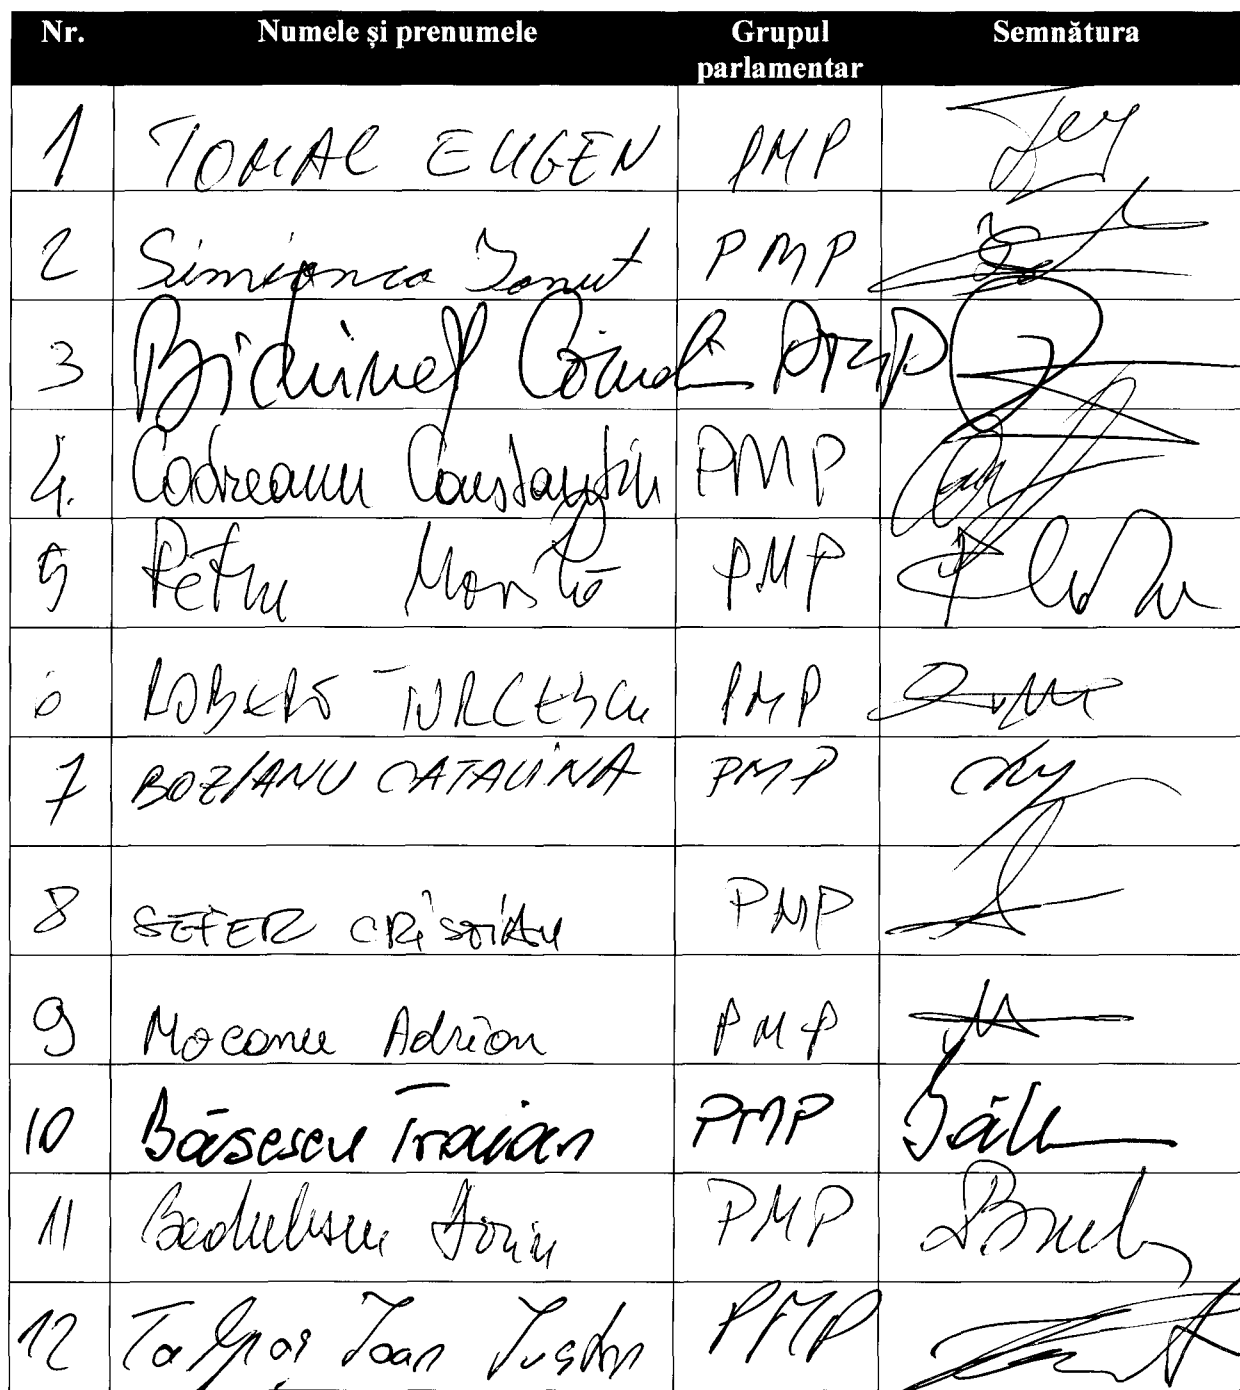 Nr. Numele și prenumele Grupul parlamentar Semnătura
1 TOMAC EUGEN PMP
2 Simionca Ionut PMP
3 Bichineț Corneliu PMP
4. Codreanu Constantin PMP
5 Petru Movilă PMP
6 ROBERT TURCESCU PMP
7 BOZIANU CATALINA PMP
8 SEFER CRISTIAN PMP
9 Mocanu Adrian PMP
10 Băsescu Traian PMP
11 Badulescu Dorin PMP
12 Talpoș Ioan Iustin PMP